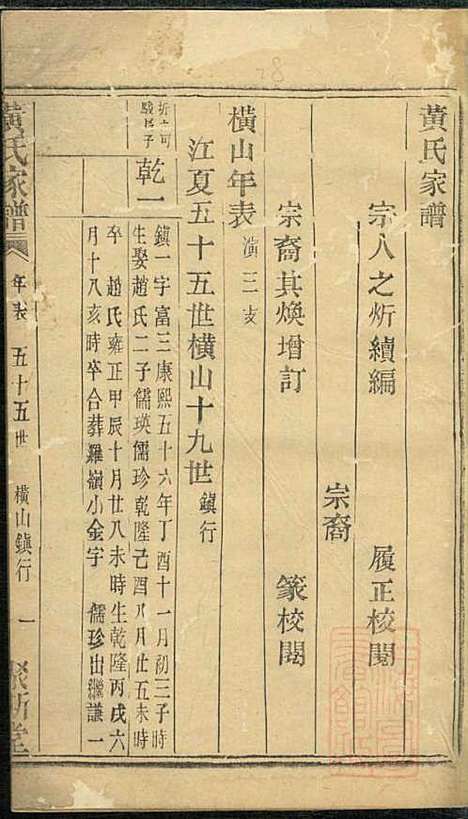 黃氏家譜
宗人之炘續編
履正校閱
宗裔
宗裔其煥增訂
篆校閱
橫山年表 演三支
江夏五十五世橫山十九世 鎮行
近司
駿長子
乾一
鎮一字富三康熙五十六年丁酉十一月初三子時
生娶趙氏二子儒瑛儒珍乾隆己酉八月廿五未時
卒 趙氏雍正甲辰十月廿八未時生乾隆丙戌六
月十八亥時卒合葬羅嶺小金字 儒珍出繼謙一
黃氏家譜
年表 五十五世 橫山鎮行 一